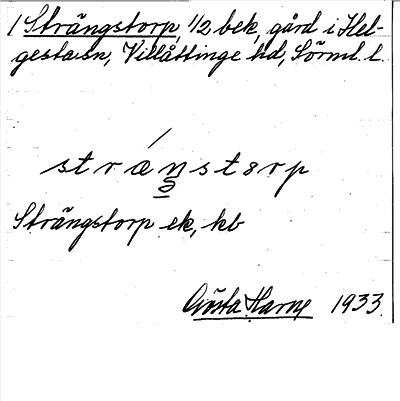 / Strängstorp, 1/2 bek, gård i Hel-
gesta sn, Villåttinge hd, Sörml. l.
strænstorp
Strängstorp ek, kb
Gösta Harne 1933.